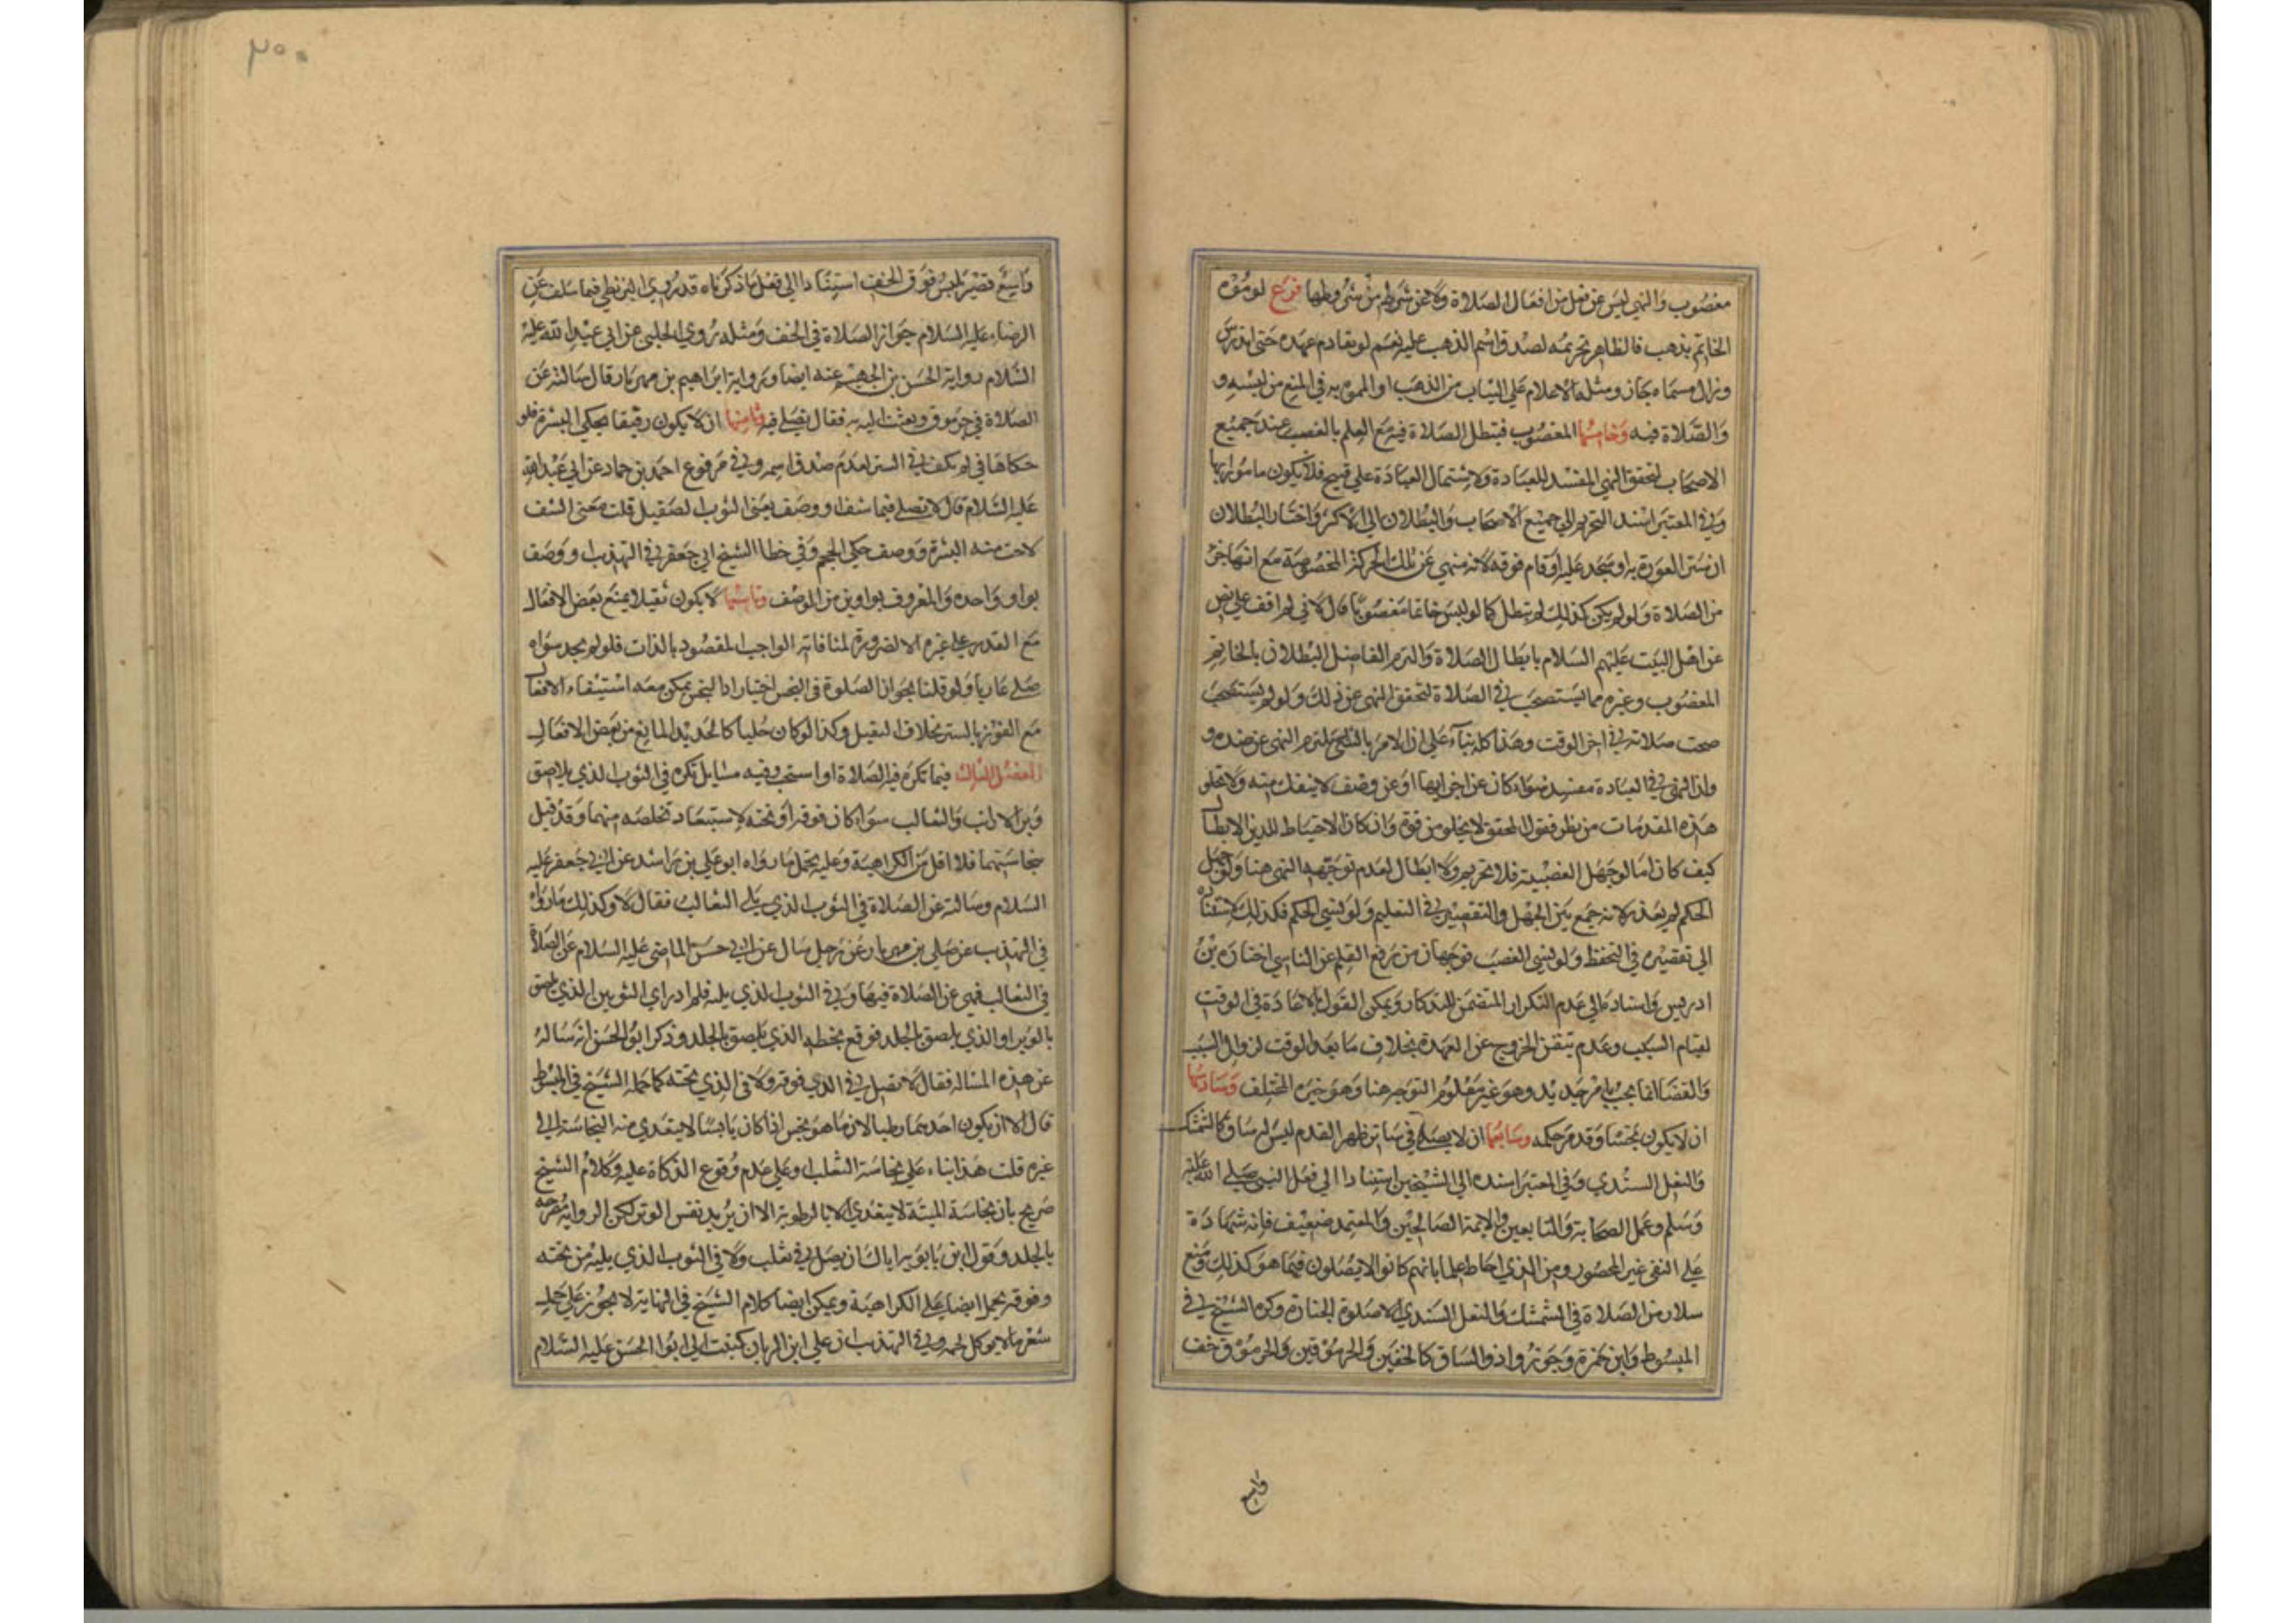 مغصوب والنهي ليس عن فعل من افعال الصلاة ولا عن شرط من شروطها فرع لو موّه
الخاتم بذهب فالظاهر تحريمه لصدق اسم الذهب عليه نعم لو تقادم عهده حتى اندرس
وزال مسماه جاز ومثله الاعلام على الثياب من الذهب او المموه به في المنع من لبسه و
والصلاة فيه وخامسها المغصوب فتبطل الصلاة فيه مع العلم بالغصب عند جميع
الاصحاب لتحقق النهي المفسد للعبادة ولاشتمال العبادة على قبيح فلا يكون مامورا بها
وفي المعتبر اسند التحريم الى جميع الاصحاب والبطلان الى الاكثر واختار البطلان
ان ستر العورة به او سجد عليه او قام فوقه لانه منهي عن تلك الحركة المخصوصة مع انها جزء
من الصلاة ولو لم يكن كذلك لم تبطل كما لو لبس خاتما مغصوبا قال لاني لم اقف على نص
عن اهل البيت عليهم السلام بابطال الصلاة والتزم الفاضل البطلان بالخاتم
المغصوب وغيره مما يستصحب في الصلاة لتحقق النهي عن ذلك ولو لم يستصحب
صحت صلاته في اخر الوقت وهذا كله بناء على ان الامر بالشي يلتزم النهي عن ضده و
وان النهي في العبادة مفسد سواء كان عن اجزائها او عن وصف لا ينفك منه ولا تخلو
هذه المقدمات من نظر فقول المحقق لا يخلو من قوة وان كان الاحتياط للدين الابطال
كيف كان اما لو جهل الغصبية فلا تحريم ولا ابطال لعدم توجه النهي هنا ولو جهل
الحكم لم يعذر لانه جمع بين الجهل والتقصير في التعليم ولو نسي الحكم فكذلك لاستناده
الى تقصيره في التحفظ ولو نسي الغصب فوجهان من رفع القلم عن الناسي اختاره بن
ادريس واستناده الى عدم التكرار المتضمن للتذكار ويمكن القول بالاعادة في الوقت
لقيام السبب وعدم تيقن الخروج عن العهدة بخلاف ما بعد الوقت لزوال السبب
والقضا انما يجب بامر جديد وهو غير معلوم التوجه هنا وهو خيره المختلف وسادسها
ان لا يكون نجسا وقد مر حكمه وسابعها ان لا يصلي في ساتر ظهر القدم ليس له ساق كالشمشك
والنعل السندي وفي المعتبر اسنده الى الشيخين استنادا الى فعل النبي صلى الله عليه
وسلم وعمل الصحابة والتابعين والايمة الصالحين والمعتمد ضعيف فانه شهادة
على النفي غير المحصور ومن الذي احاط علما بانهم كانوا لا يصلون فيما هو كذلك ومنع
سلار من الصلاة في الشمشك والنعل السندي الا صلوة الجنازة وكره الشيخ في
المبسوط وابن حمزة وجوزوا ذو الساق كالخفين والجرموقين والجرموق خف
واسع
واسع قصير يلبس فوق الخف استنادا الى فعل ما ذكرناه قد روى البزنطي فيما سلف عن
الرضا عليه السلام جواز الصلاة في الخف ومثله روى الحلبي عن ابي عبد الله عليه
السلام رواية الحسن بن الجهم عنه ايضا ورواية ابراهيم بن مهزيار قال سالته عن
الصلاة في جرموق وبعثت اليه به فقال يصلى فيه وثامنها ان لا يكون رقيقا يحكي البشرة فلو
حكاها في لم يكف في الستر لعدم صدق اسمه وفي مرفوع احمد بن حماد عن ابي عبد الله
عليه السلام قال لا تصلي فيما شف او وصف يعني الثوب الصقيل قلت معنى الشف
لاحت منه البشرة ووصف حكى الحجم وفي خط الشيخ ابي جعفر في التهذيب او وصف
بواو واحده والمعروف بواوين من الوصف وتاسعها لا يكون ثقيلا يمنع بعض الافعال
مع القدرة على غيره الا لضرورة لمنافاته الواجب المقصود بالذات فلو لم يجد سواه
صلى عاريا ولو قلنا بجواز الصلوة في النجس اختيارا اذ النجس يمكن معه استيفاء الافعال
مع الفوز بالستر بخلاف الثقيل وكذا لو كان حليا كالحديد المانع من بعض الافعال
الفصل الثالث فيما تكره فيه الصلاة او استحب وفيه مسايل تكره في الثوب الذي يلاصق
وبر الارانب والثعالب سواء كان فوقه او تحته لاستبعاد تخلصه منهما وقد قيل
بنجاستهما فلا اقل من الكراهية وعليه يحمل ما رواه ابو علي بن راشد عن ابي جعفر عليه
السلام وسالته عن الصلاة في الثوب الذي يلي الثعالب فقال لا وكذلك ما رواه
في التهذيب عن علي بن مهزيار عن رجل سال عن ابي حسن الماضي عليه السلام عن الصلاة
في الثعالب فنهى عن الصلاة فيها وفي الثوب الذي يليه فلم ادر اي الثوبين الذي يلصق
بالوبر او الذي يلصق بالجلد فوقع بخطه الذي يلصق بالجلد وذكر ابو الحسن انه ساله
عن هذه المسالة فقال لا تصل في الذي فوقه ولا في الذي تحته كما حمله الشيخ في المبسوط
قال الا ان يكون احدهما رطبا لان ما هو نجس اذا كان يابسا لا يتعدى منه النجاسة الى
غيره قلت هذا بناء على نجاسة الثعلب وعلى عدم وقوع الذكاة عليه وكلام الشيخ
صريح بان نجاسة الميتة لا يتعدى الا بالرطوبة الا ان يريد نفس الوبر لكن الرواية مصرحة
بالجلد وقول ابن بابويه اياك ان يصل في ثعلب ولا في الثوب الذي يليه من تحته
وفوقه يحمل ايضا على الكراهية ويمكن ايضا كلام الشيخ في النهاية لا يجوز على جلد
شعر ما لا يوكل لحمه وفي التهذيب ان علي ابن الريان كتبت الى ابو الحسن عليه السلام